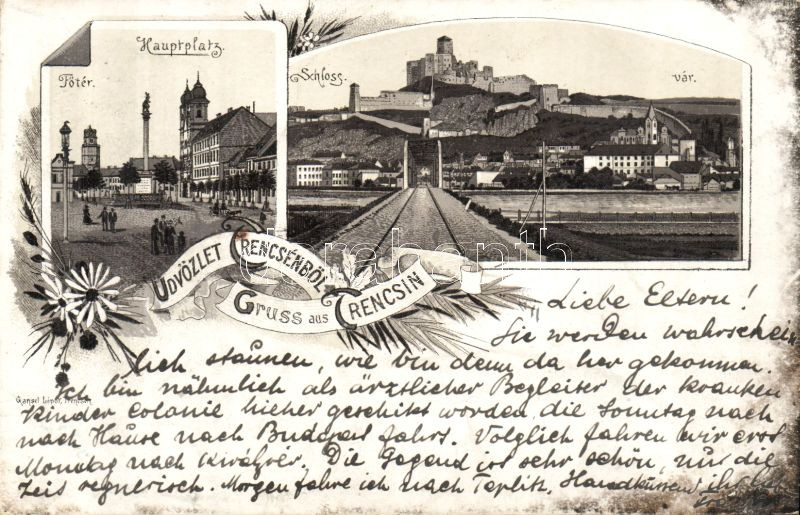 Hauptplatz.
Főtér.
Schloss.
vár.
Darabanth
ÜDVÖZLET TRENCSÉNBŐL
GRUSS aus TRENCSIN
Gansel Lipót, Trencsén.
Liebe Eltern!
Sie werden wahrschein
lich staunen, wie bin denn da her gekommen.
Ich bin nähmlich als ärztlicher Begleiter der kranken
Kinder Colonie hieher geschikt worden die Sonntag nach
nach Hause nach Budapest fahrt. Volglich fahren wir erst
Montag nach Királyér. Die Gegend ist sehr schön, nur die
Zeit regnerisch. Morgen fahre ich nach Teplitz, Handküssend ihr